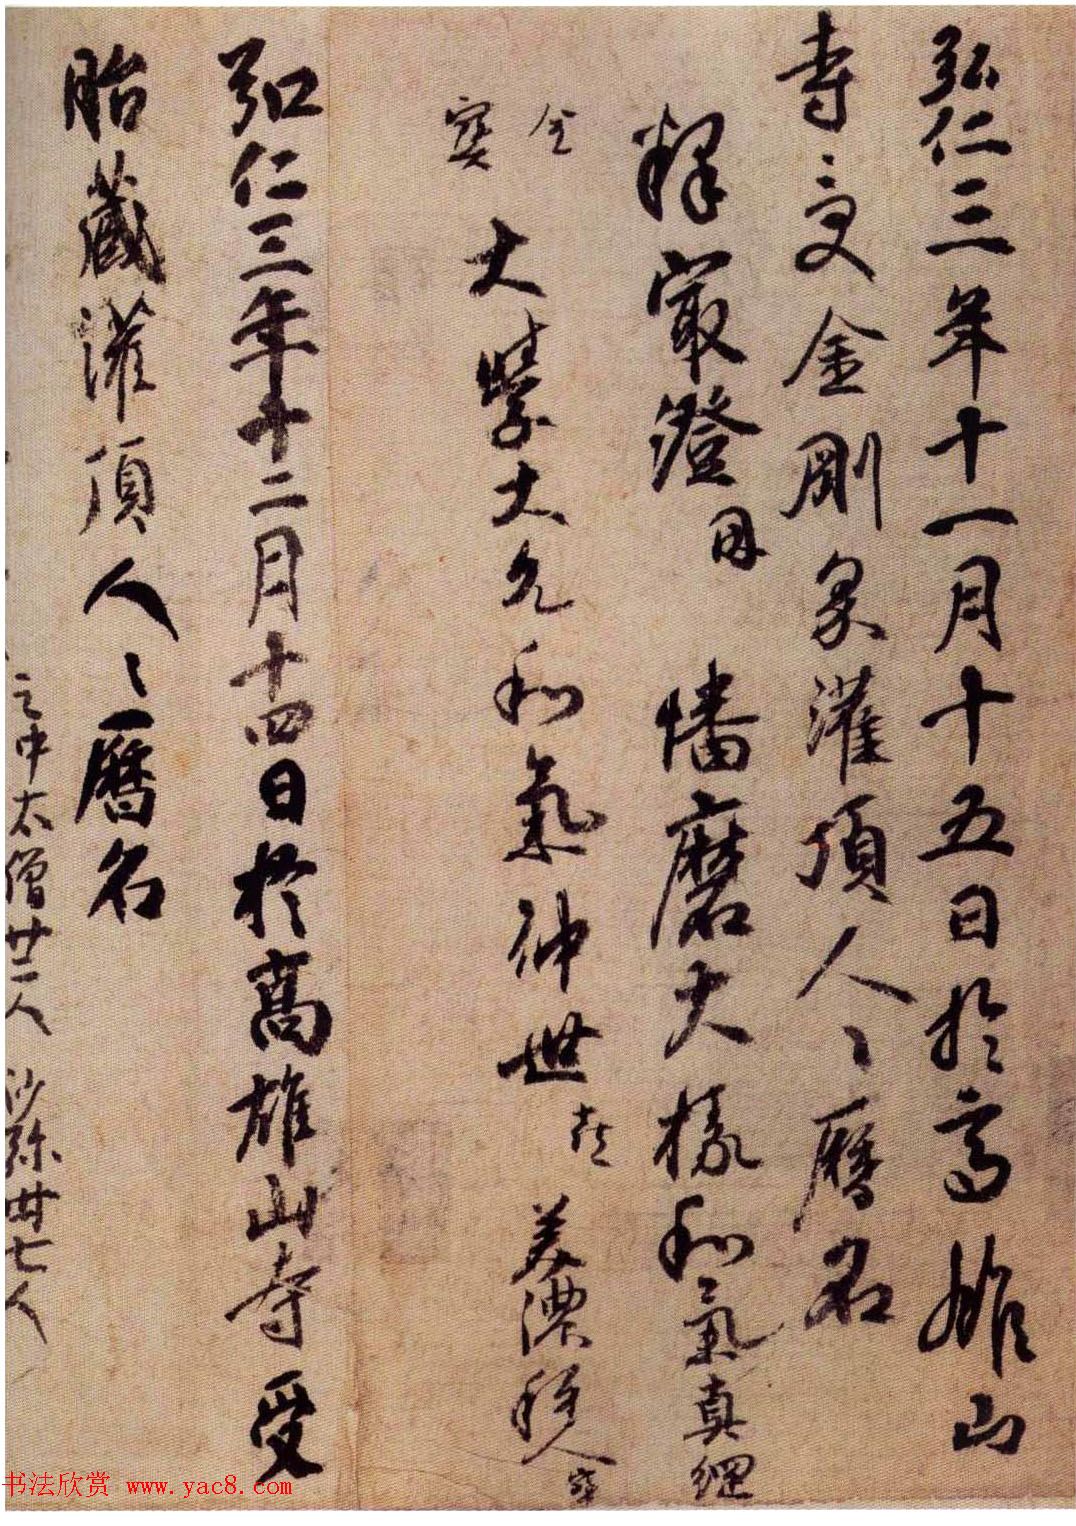 弘仁三年十一月十五日於高雄山
寺受金剛界灌頂人々曆名
釋最澄 因 播磨大掾和氣真綱
金 大學大允和氣仲世 喜 美濃種人 寶
寶
弘仁三年十二月十四日於高雄山寺受
胎藏灌頂人々曆名
之中太僧廿一人 沙弥卅七人
书法欣赏 www.yac8.com